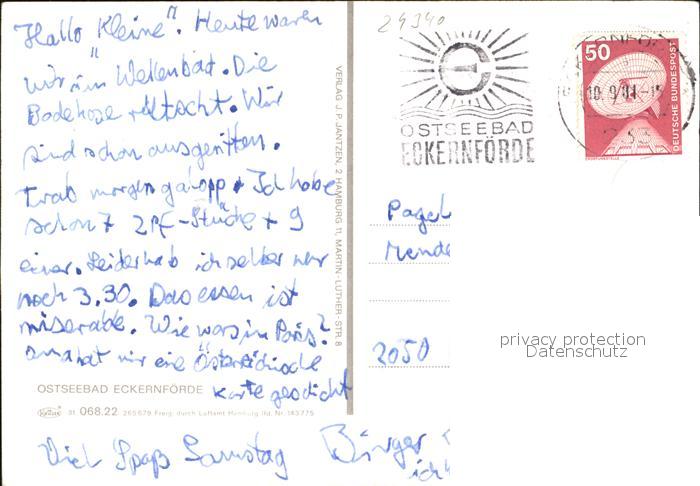 Hallo "Kleine". Heute waren
wir im Wellenbad. Die
Badehose rutscht. Wir
sind schon ausgeritten.
Trab morgen galopp. Ich habe
schon 7 2PF-Stücke + 9
einer. Leider hab ich selber nur
noch 3.30. Das essen ist
miserabel. Wie wars in Paris?
oma hat mir eine Österreichische
Karte geschickt
OSTSEEBAD ECKERNFÖRDE
Krüger 31 068.22 265679 Freig. durch Luftamt Hamburg lfd. Nr. 143775
Viel Spaß Samstag
VERLAG J. P. JANTZEN, 2 HAMBURG 11, MARTIN-LUTHER-STR. 8
24340
OSTSEEBAD
ECKERNFÖRDE
10.9.81-15
50
DEUTSCHE BUNDESPOST
ERDEFUNKSTELLE
Pagel
Mende
2050
privacy protection
Datenschutz